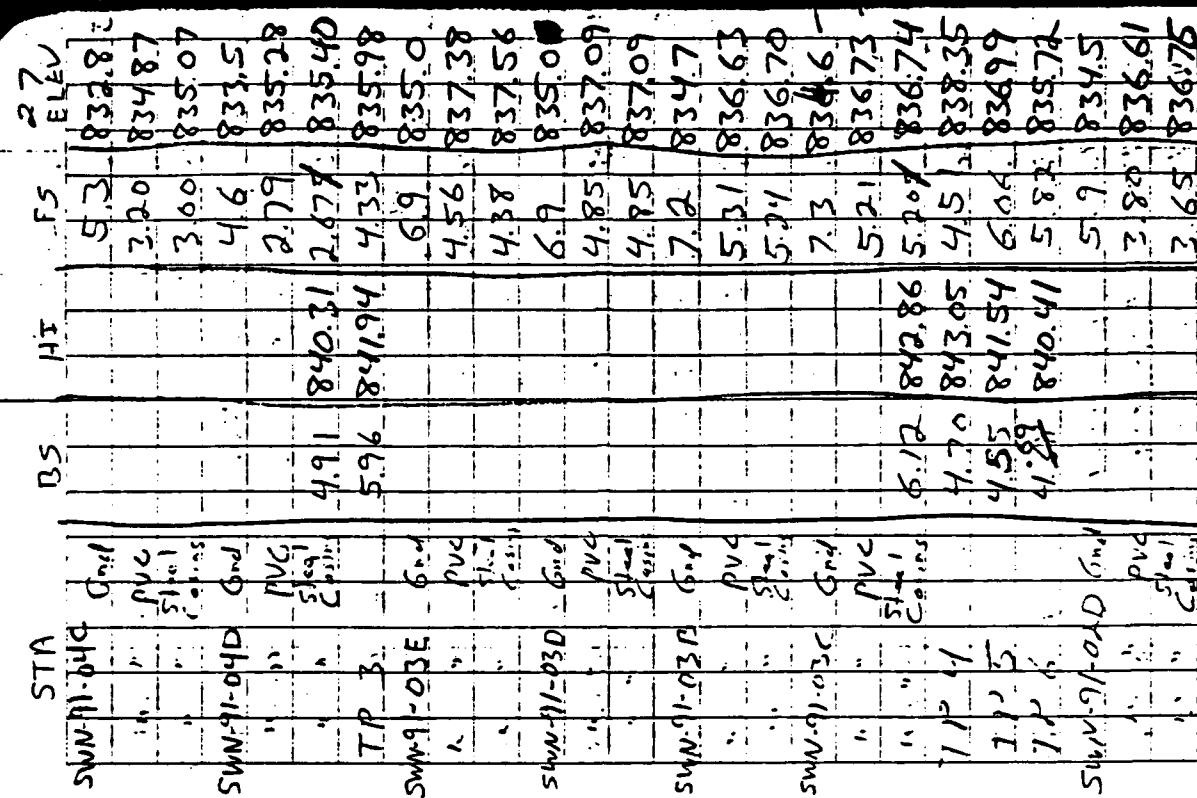 27
STA BS HI FS ELEV
SWN-91-04C Gnd 5.3 832.8
" " PVC 3.20 834.87
" " Steel Casing 3.00 835.07
SWN-91-04D Gnd 4.6 833.5
" " PVC 2.79 835.28
" " Steel Casing 4.91 840.31 2.67 835.40
TP 3 5.96 841.94 4.33 835.98
SWN-91-03E Gnd 6.9 835.0
" " PVC 4.56 837.38
" " Steel Casing 4.38 837.56
SWN-91-03D Gnd 6.9 835.0
" " PVC 4.85 837.09
" " Steel Casing 4.85 837.09
SWN-91-03B Gnd 7.2 834.7
" " PVC 5.31 836.63
" " Steel Casing 5.24 836.70
SWN-91-03C Gnd 7.3 834.6
" " PVC 5.21 836.73
" " Steel Casing 6.12 842.86 5.20 836.74
TP 4 4.70 843.05 4.51 838.35
TP 5 4.55 841.54 6.06 836.99
TP 6 4.69 840.41 5.82 835.72
SWN-91-02D Gnd 5.9 834.5
" " PVC 3.80 836.61
" " Steel Casing 3.65 836.76